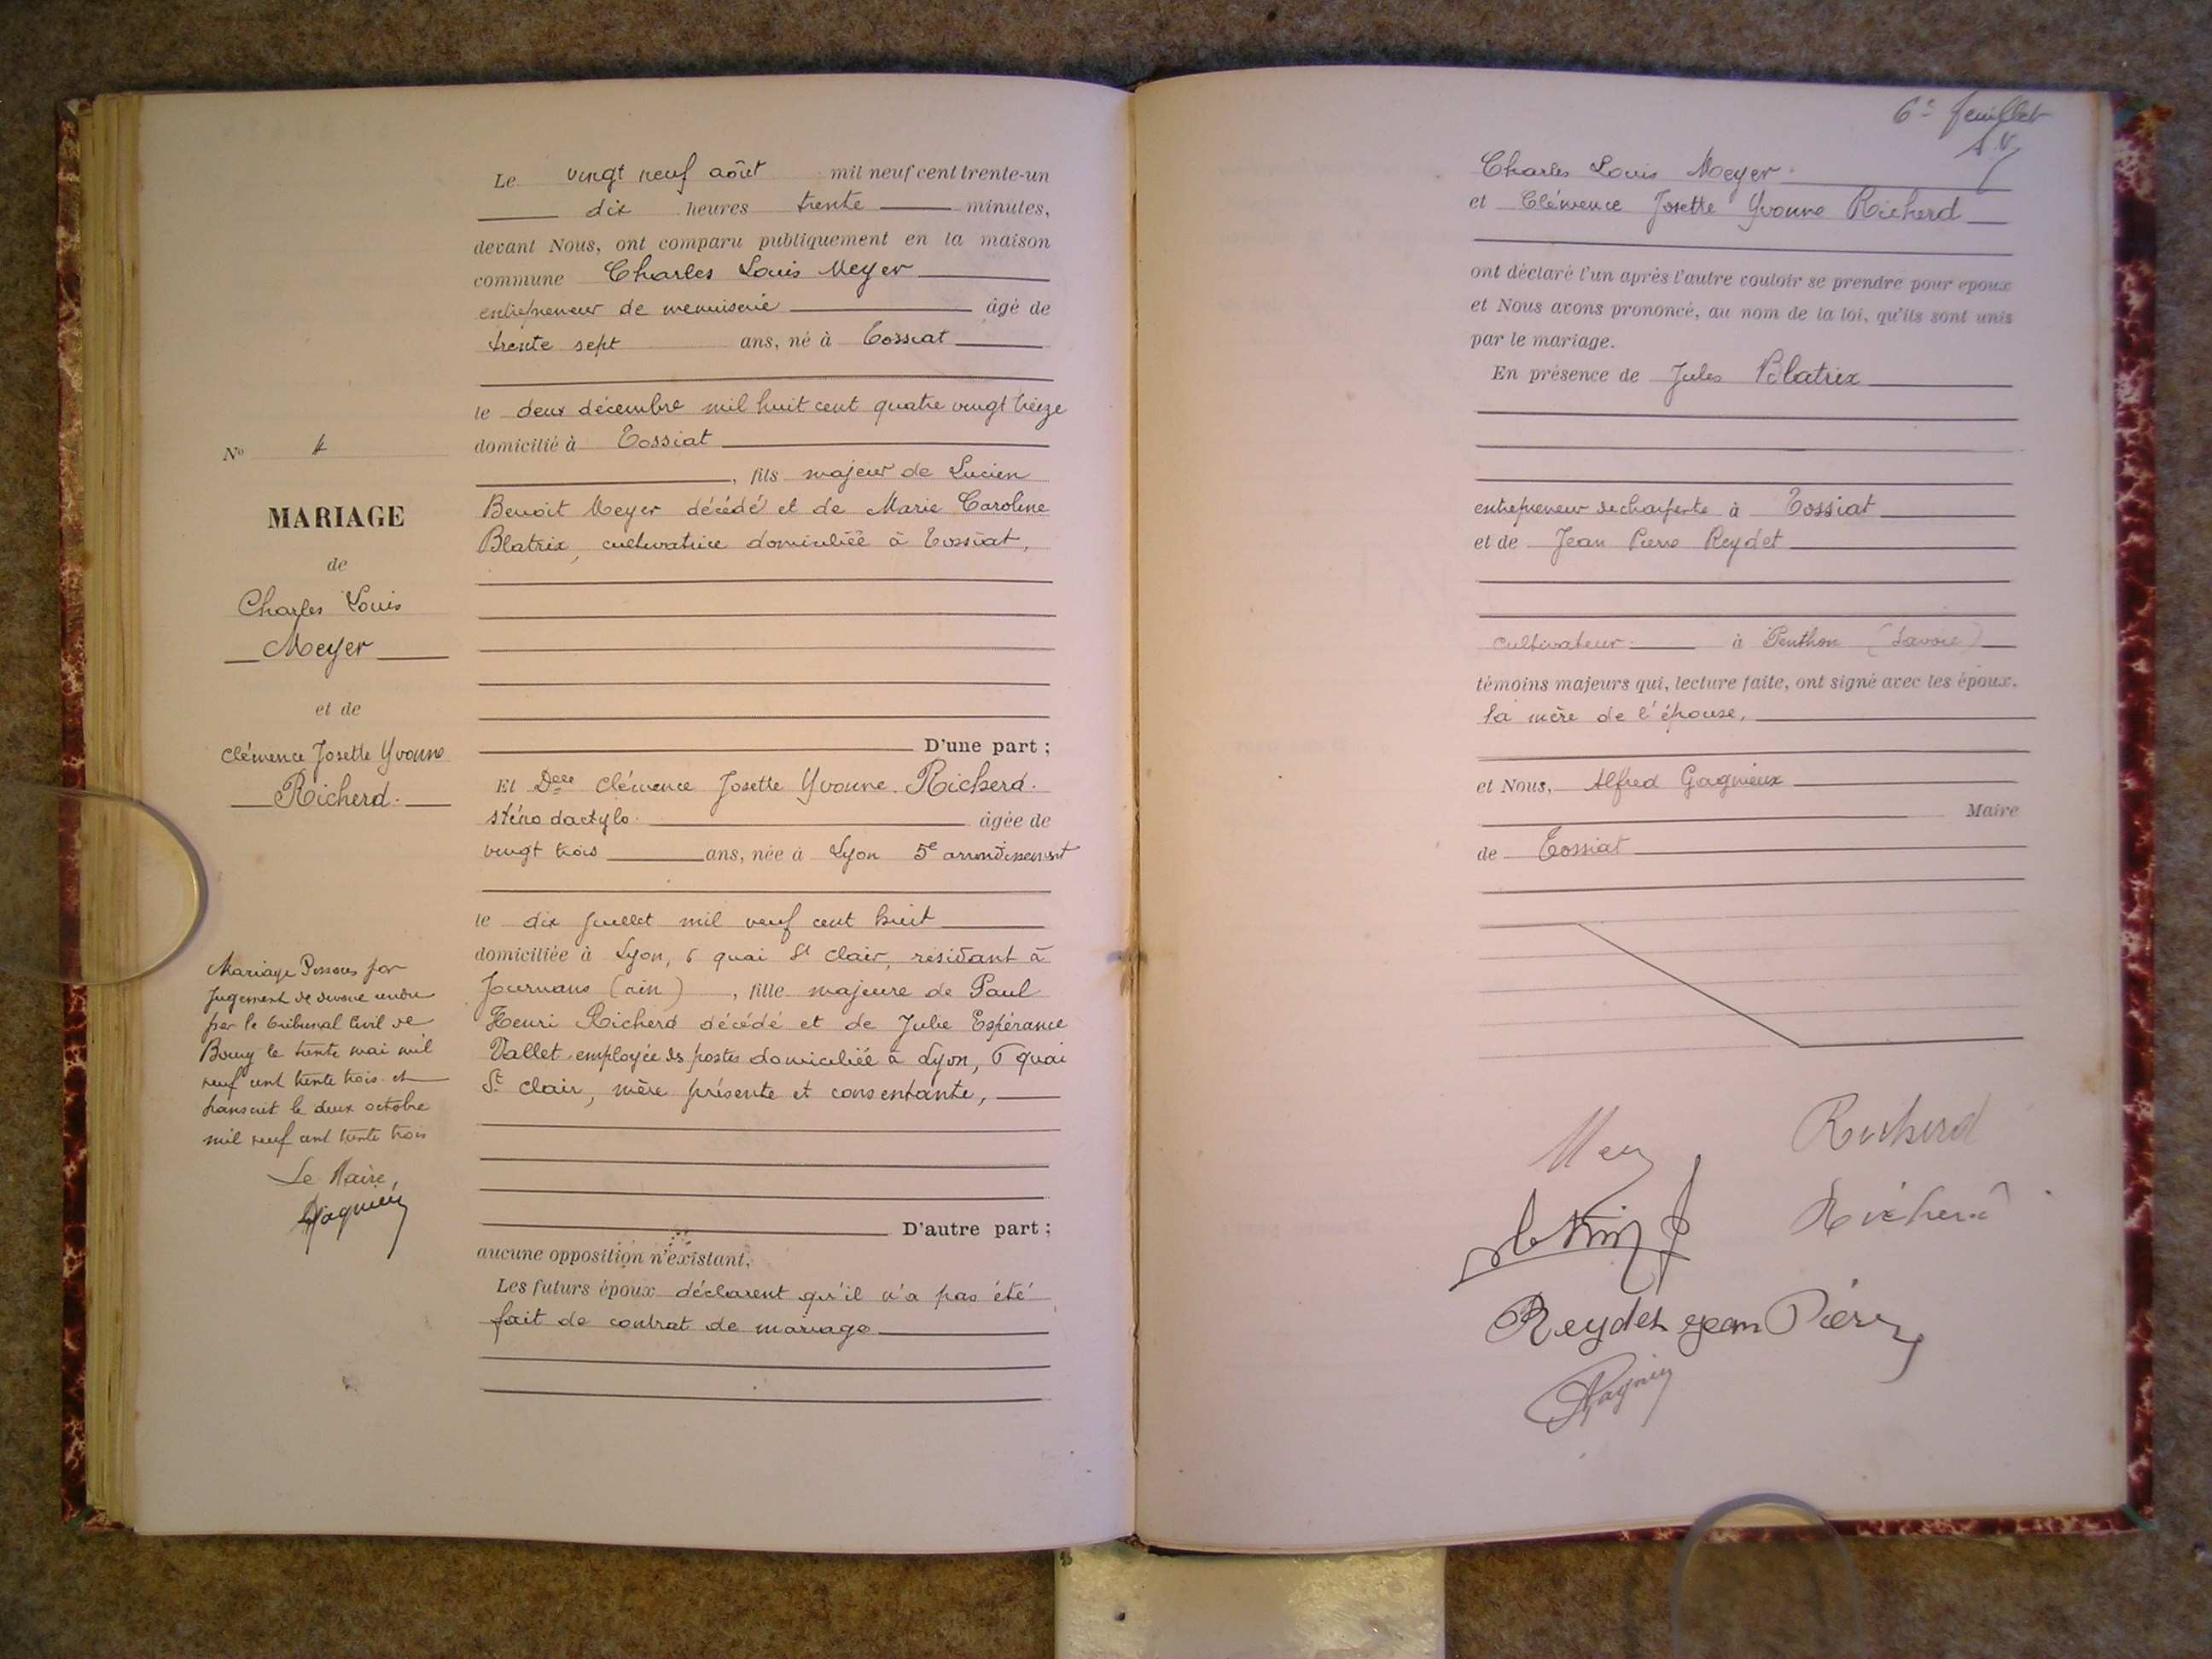 Le vingt neuf août mil neuf cent trente-un
dix heures trente minutes,
devant Nous, ont comparu publiquement en la maison
commune Charles Louis Meyer
entrepreneur de menuiserie âgé de
trente sept ans, né à Tossiat
le deux décembre mil huit cent quatre vingt treize
domicilié à Tossiat
, fils majeur de Lucien
Benoit Meyer décédé et de Marie Caroline
Blatrix, cultivatrice domiciliée à Tossiat,
D'une part ;
Et Delle Clémence Josette Yvonne Richerd.
sténo dactylo. âgée de
vingt trois ans, née à Lyon 5e arrondissement
le dix juillet mil neuf cent huit
domiciliée à Lyon, 6 quai St Clair, résidant à
Journans (ain) , fille majeure de Paul
Henri Richerd décédé et de Julie Espérance
Vallet employée des postes domiciliée à Lyon, 6 quai
St Clair, mère présente et consentante,
D'autre part ;
aucune opposition n'existant,
Les futurs époux déclarent qu'il n'a pas été
fait de contrat de mariage
No 4
MARIAGE
de
Charles Louis
Meyer
et de
Clémence Josette Yvonne
Richerd.
Mariage Dissous par
Jugement de divorce rendu
par le tribunal Civil de
Bourg le trente mai mil
neuf cent trente trois et
transcrit le deux octobre
mil neuf cent trente trois
Le Maire,
6e feuillet
A.V.
Charles Louis Meyer.
et Clémence Josette Yvonne Richerd
ont déclaré l'un après l'autre vouloir se prendre pour époux
et Nous avons prononcé, au nom de la loi, qu'ils sont unis
par le mariage.
En présence de Jules Blatrix
entrepreneur de charpente à Tossiat
et de Jean Pierre Reydet
cultivateur à Penthon (Savoie)
témoins majeurs qui, lecture faite, ont signé avec les époux.
la mère de l'épouse,
et Nous, Alfred Gagnieux
Maire
de Tossiat
Richerd
Richerd
Reydet Jean Pierre